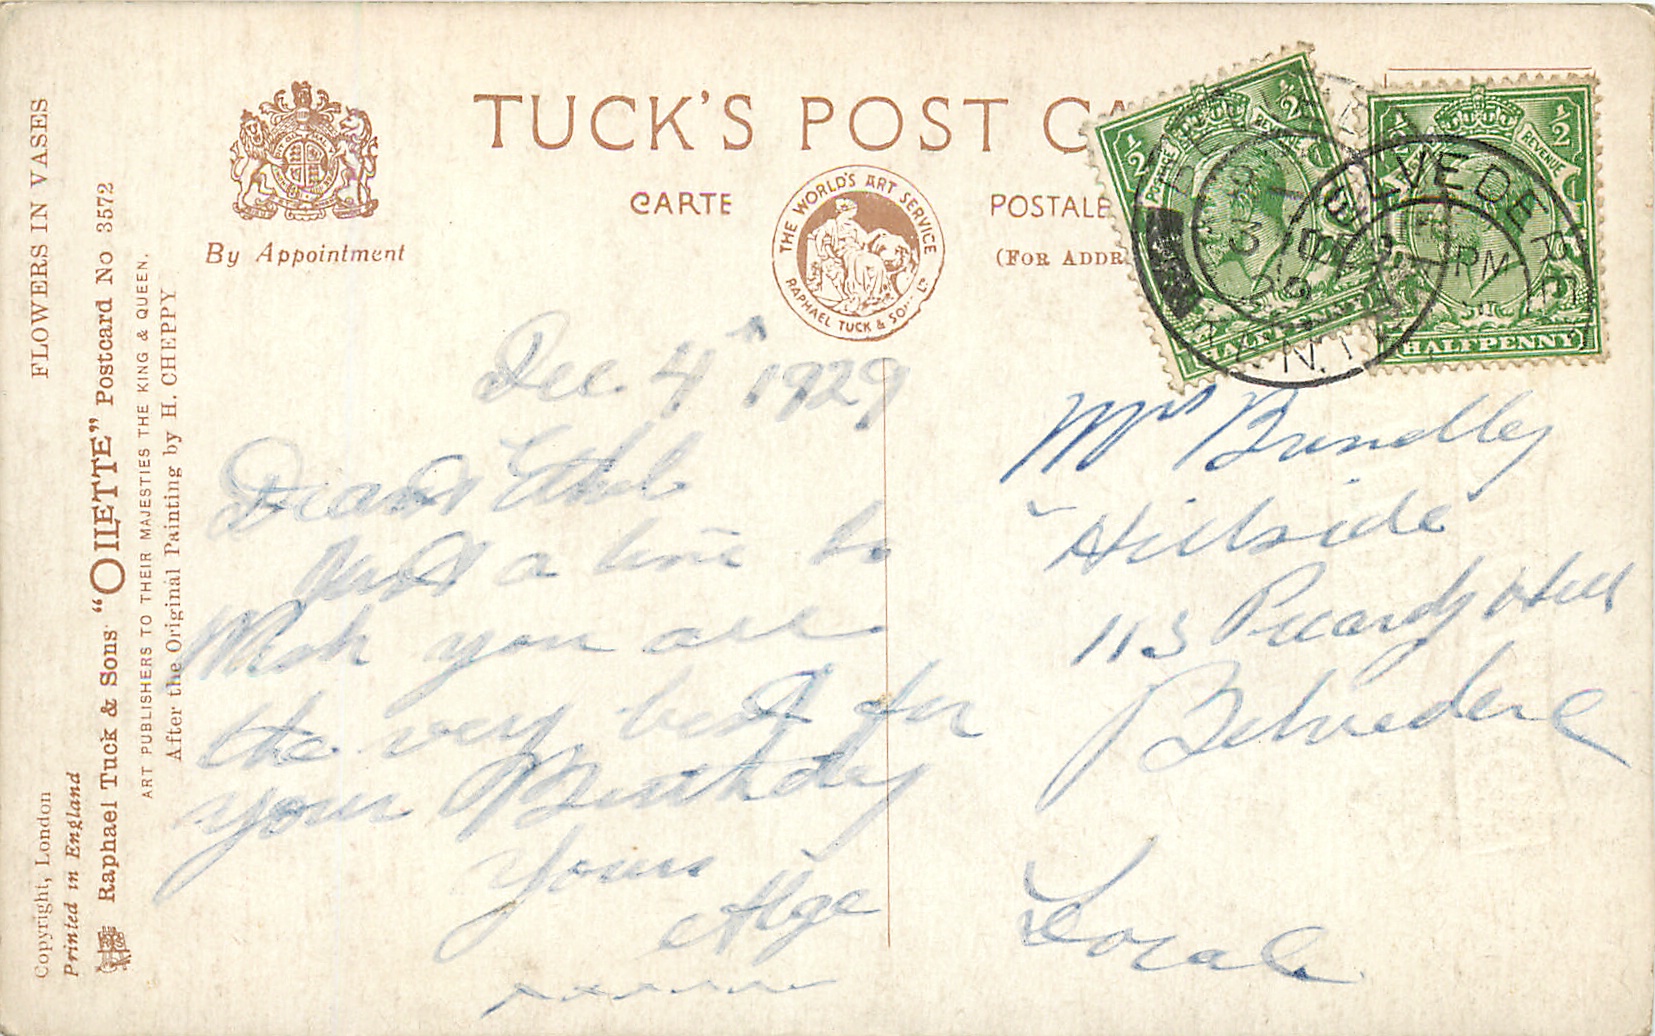 TUCK'S POST CA
CARTE POSTALE
(FOR ADDR
By Appointment
THE WORLD'S ART SERVICE
RAPHAEL TUCK & SONS LD
FLOWERS IN VASES
Copyright, London
Printed in England
Raphael Tuck & Sons' "OILETTE" Postcard No 3572
ART PUBLISHERS TO THEIR MAJESTIES THE KING & QUEEN.
After the Original Painting by H. CHEPPY
½ ½
POSTAGE REVENUE
HALFPENNY
½ ½
REVENUE
HALFPENNY
BELVEDERE
KENT
Dec 4th 1929
Dear Ethel
Just a line to
Wish you all
the very best for
your Birthday
Yours
Alge
Mrs Brindley
"Hillside"
113 Picardy Hill
Belvedere
Local